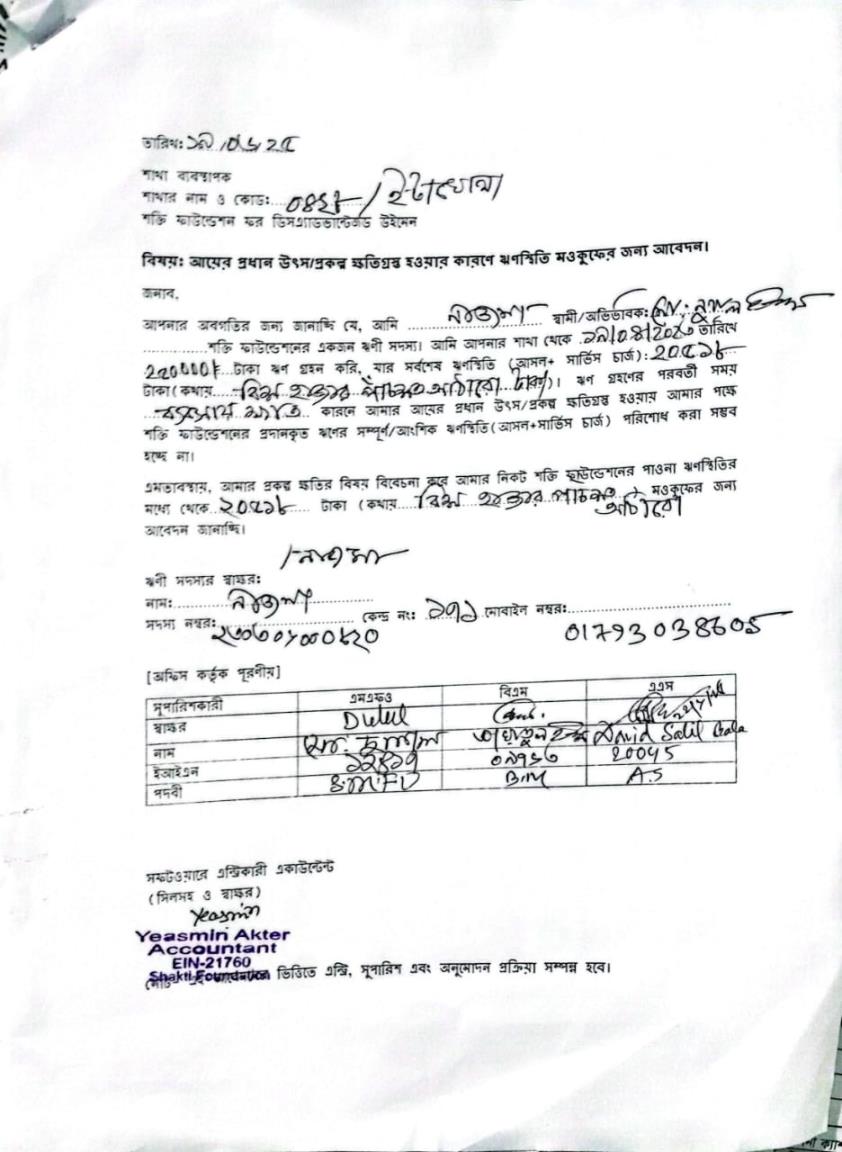 তারিখঃ ১৯/০৬/২৫
শাখা ব্যবস্থাপক
শাখার নাম ও কোডঃ ০৪২৮/ইটাখোলা
শক্তি ফাউন্ডেশন ফর ডিসএ্যাডভান্টেজড উইমেন
বিষয়ঃ আয়ের প্রধান উৎস/প্রকল্প ক্ষতিগ্রস্থ হওয়ার কারণে ঋণস্থিতি মওকুফের জন্য আবেদন।
জনাব,
আপনার অবগতির জন্য জানাচ্ছি যে, আমি স্বামী/অভিভাবকঃ
শক্তি ফাউন্ডেশনের একজন ঋণী সদস্য। আমি আপনার শাখা থেকে তারিখে
টাকা ঋণ গ্রহন করি, যার সর্বশেষ ঋণস্থিতি (আসল+ সার্ভিস চার্জ): ২০৫১৮
টাকা (কথায় বিশ হাজার পাঁচশত আঠারো টাকা)। ঋণ গ্রহণের পরবর্তী সময়
ব্যবসায় ক্ষতি কারনে আমার আয়ের প্রধান উৎস/প্রকল্প ক্ষতিগ্রস্থ হওয়ায় আমার পক্ষে
শক্তি ফাউন্ডেশনের প্রদানকৃত ঋণের সম্পূর্ণ/আংশিক ঋণস্থিতি(আসল+সার্ভিস চার্জ) পরিশোধ করা সম্ভব
হচ্ছে না।
এমতাবস্থায়, আমার প্রকল্প ক্ষতির বিষয় বিবেচনা করে আমার নিকট শক্তি ফাউন্ডেশনের পাওনা ঋণস্থিতির
মধ্যে থেকে ২০৫১৮ টাকা (কথায় বিশ হাজার পাচশত আঠারো) মওকুফের জন্য
আবেদন জানাচ্ছি।
ঋণী সদস্যর স্বাক্ষরঃ
নামঃ
সদস্য নম্বরঃ কেন্দ্র নং: ১৭১ মোবাইল নম্বরঃ
01793038605
[অফিস কর্তৃক পূরণীয়]
সুপারিশকারী এমএফও বিএম এএম
স্বাক্ষর Dulul
নাম মোঃ দুলাল David Salil Bala
ইআইএন ১২৪১৭ ০৯৭৮৩ 20045
পদবী S.M.F.O B.M A.S
সফটওয়ারে এন্ট্রিকারী একাউন্টেন্ট
(সিলসহ ও স্বাক্ষর)
Yeasmin
Yeasmin Akter
Accountant
EIN-21760
Shakti Foundation
ভিত্তিতে এন্ট্রি, সুপারিশ এবং অনুমোদন প্রক্রিয়া সম্পন্ন হবে।